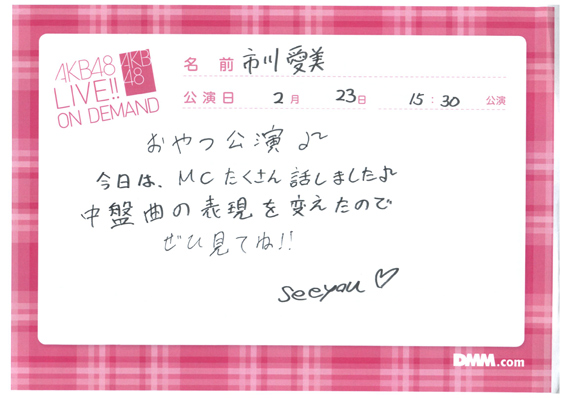 AKB48
LIVE!!
ON DEMAND
AKB
48
名 前 市川愛美
公演日 2月 23日 15:30 公演
おやつ公演♪
今日は、MCたくさん話しました♪
中盤曲の表現を変えたので
ぜひ見てね!!
seeyou♡
DMM.com